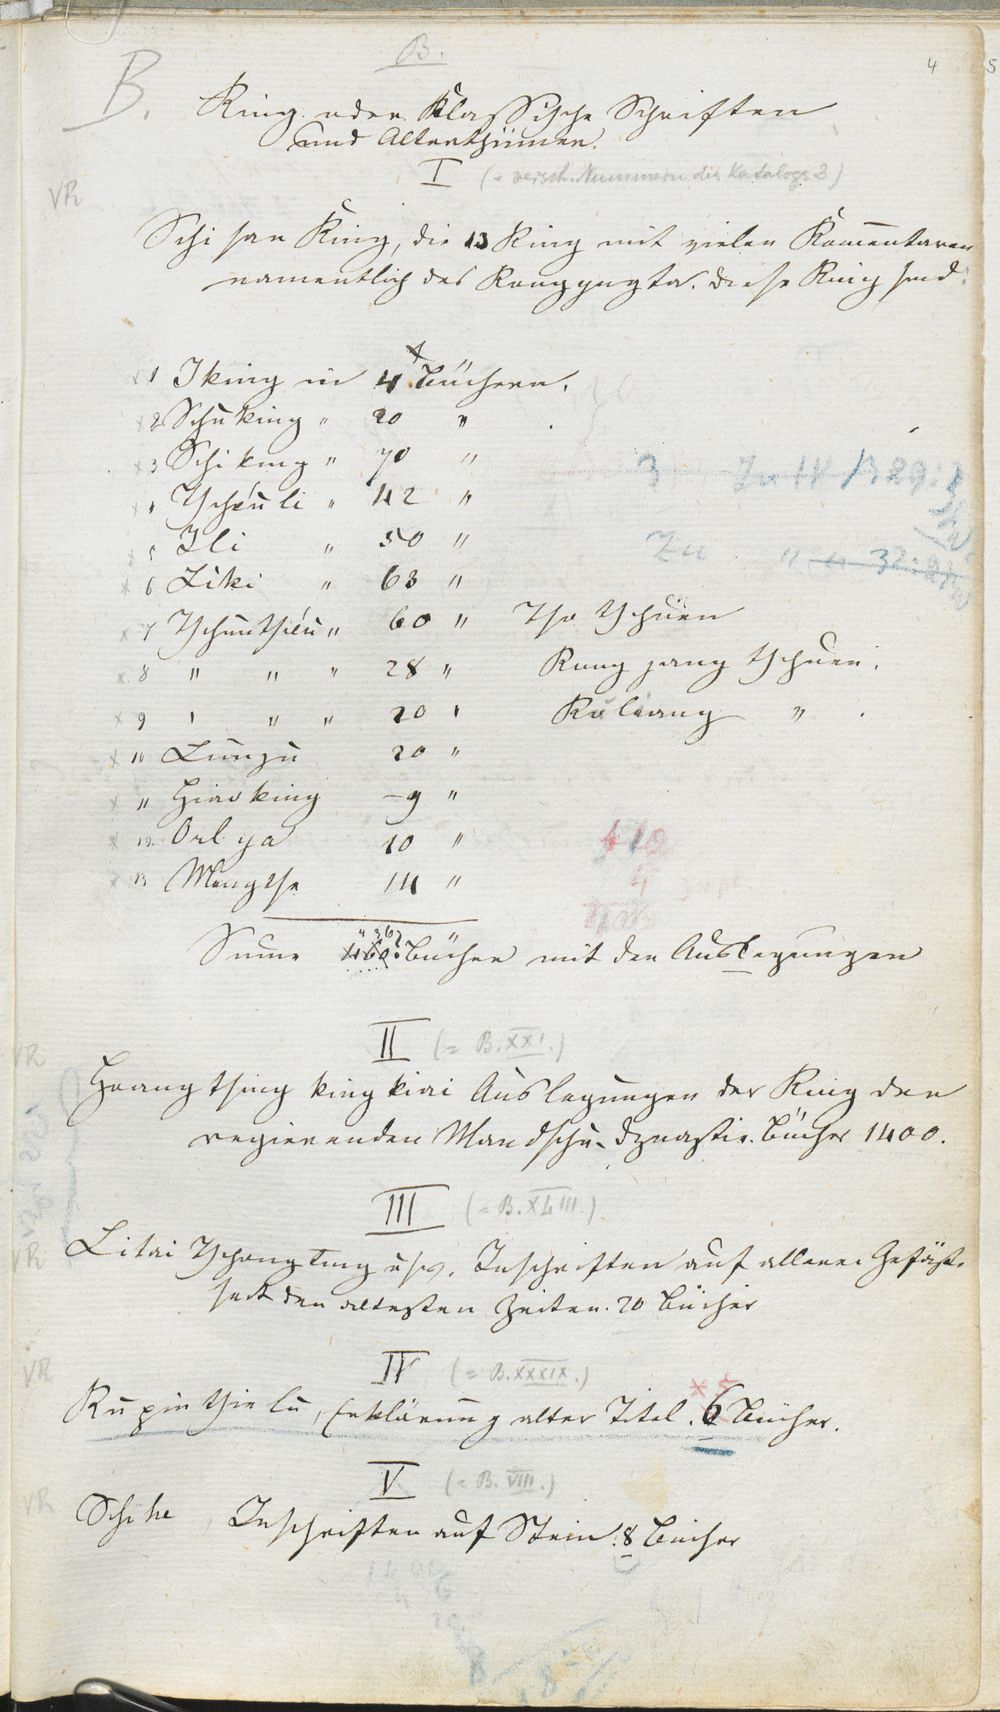 B.
4
5
B.
King oder Klassische Schriften
und Alterthümer.
I (= versch. Nummern des Katalogs 3)
VR
Schi san King, die 13 King mit vielen Kommentaren
namentlich des Kongyngta. Diese King sind:
x 1 Iking in 4 Büchern.
x 2 Schuking " 20 "
x 3 Schi king " 70 "
x 4 Tscheu li " 42 "
x 5 Ili " 50 "
x 6 Liki " 63 "
x 7 Tschuntsieu " 60 " Tso tschuen
x 8 " " " 28 " Kung yang tschuen.
x 9 " " " 20 " Ku liang "
x 10 Lunyu 20 "
x 11 Hiao king 9 "
x 12 Oel ya 10 "
x 13 Mengtse 14 "
410
Sume Bücher mit den Auslegungen
II (= B. XXI.)
VR
Hoang thsing king kiai Auslegungen der King der
regierenden Mandschu-Dynastie. Bücher 1400.
III (= B. XLIII.)
VR
Litai Tschong ting usw. Inschriften auf allerei Gefäße
seit den ältesten Zeiten. 20 Bücher
IV (= B. XXXIX.)
VR
Ku pin thie lu, Erklärung alter Titel. 6 Bücher.
V (= B. VIII.)
VR
Schi he Inschriften auf Stein. 8 Bücher